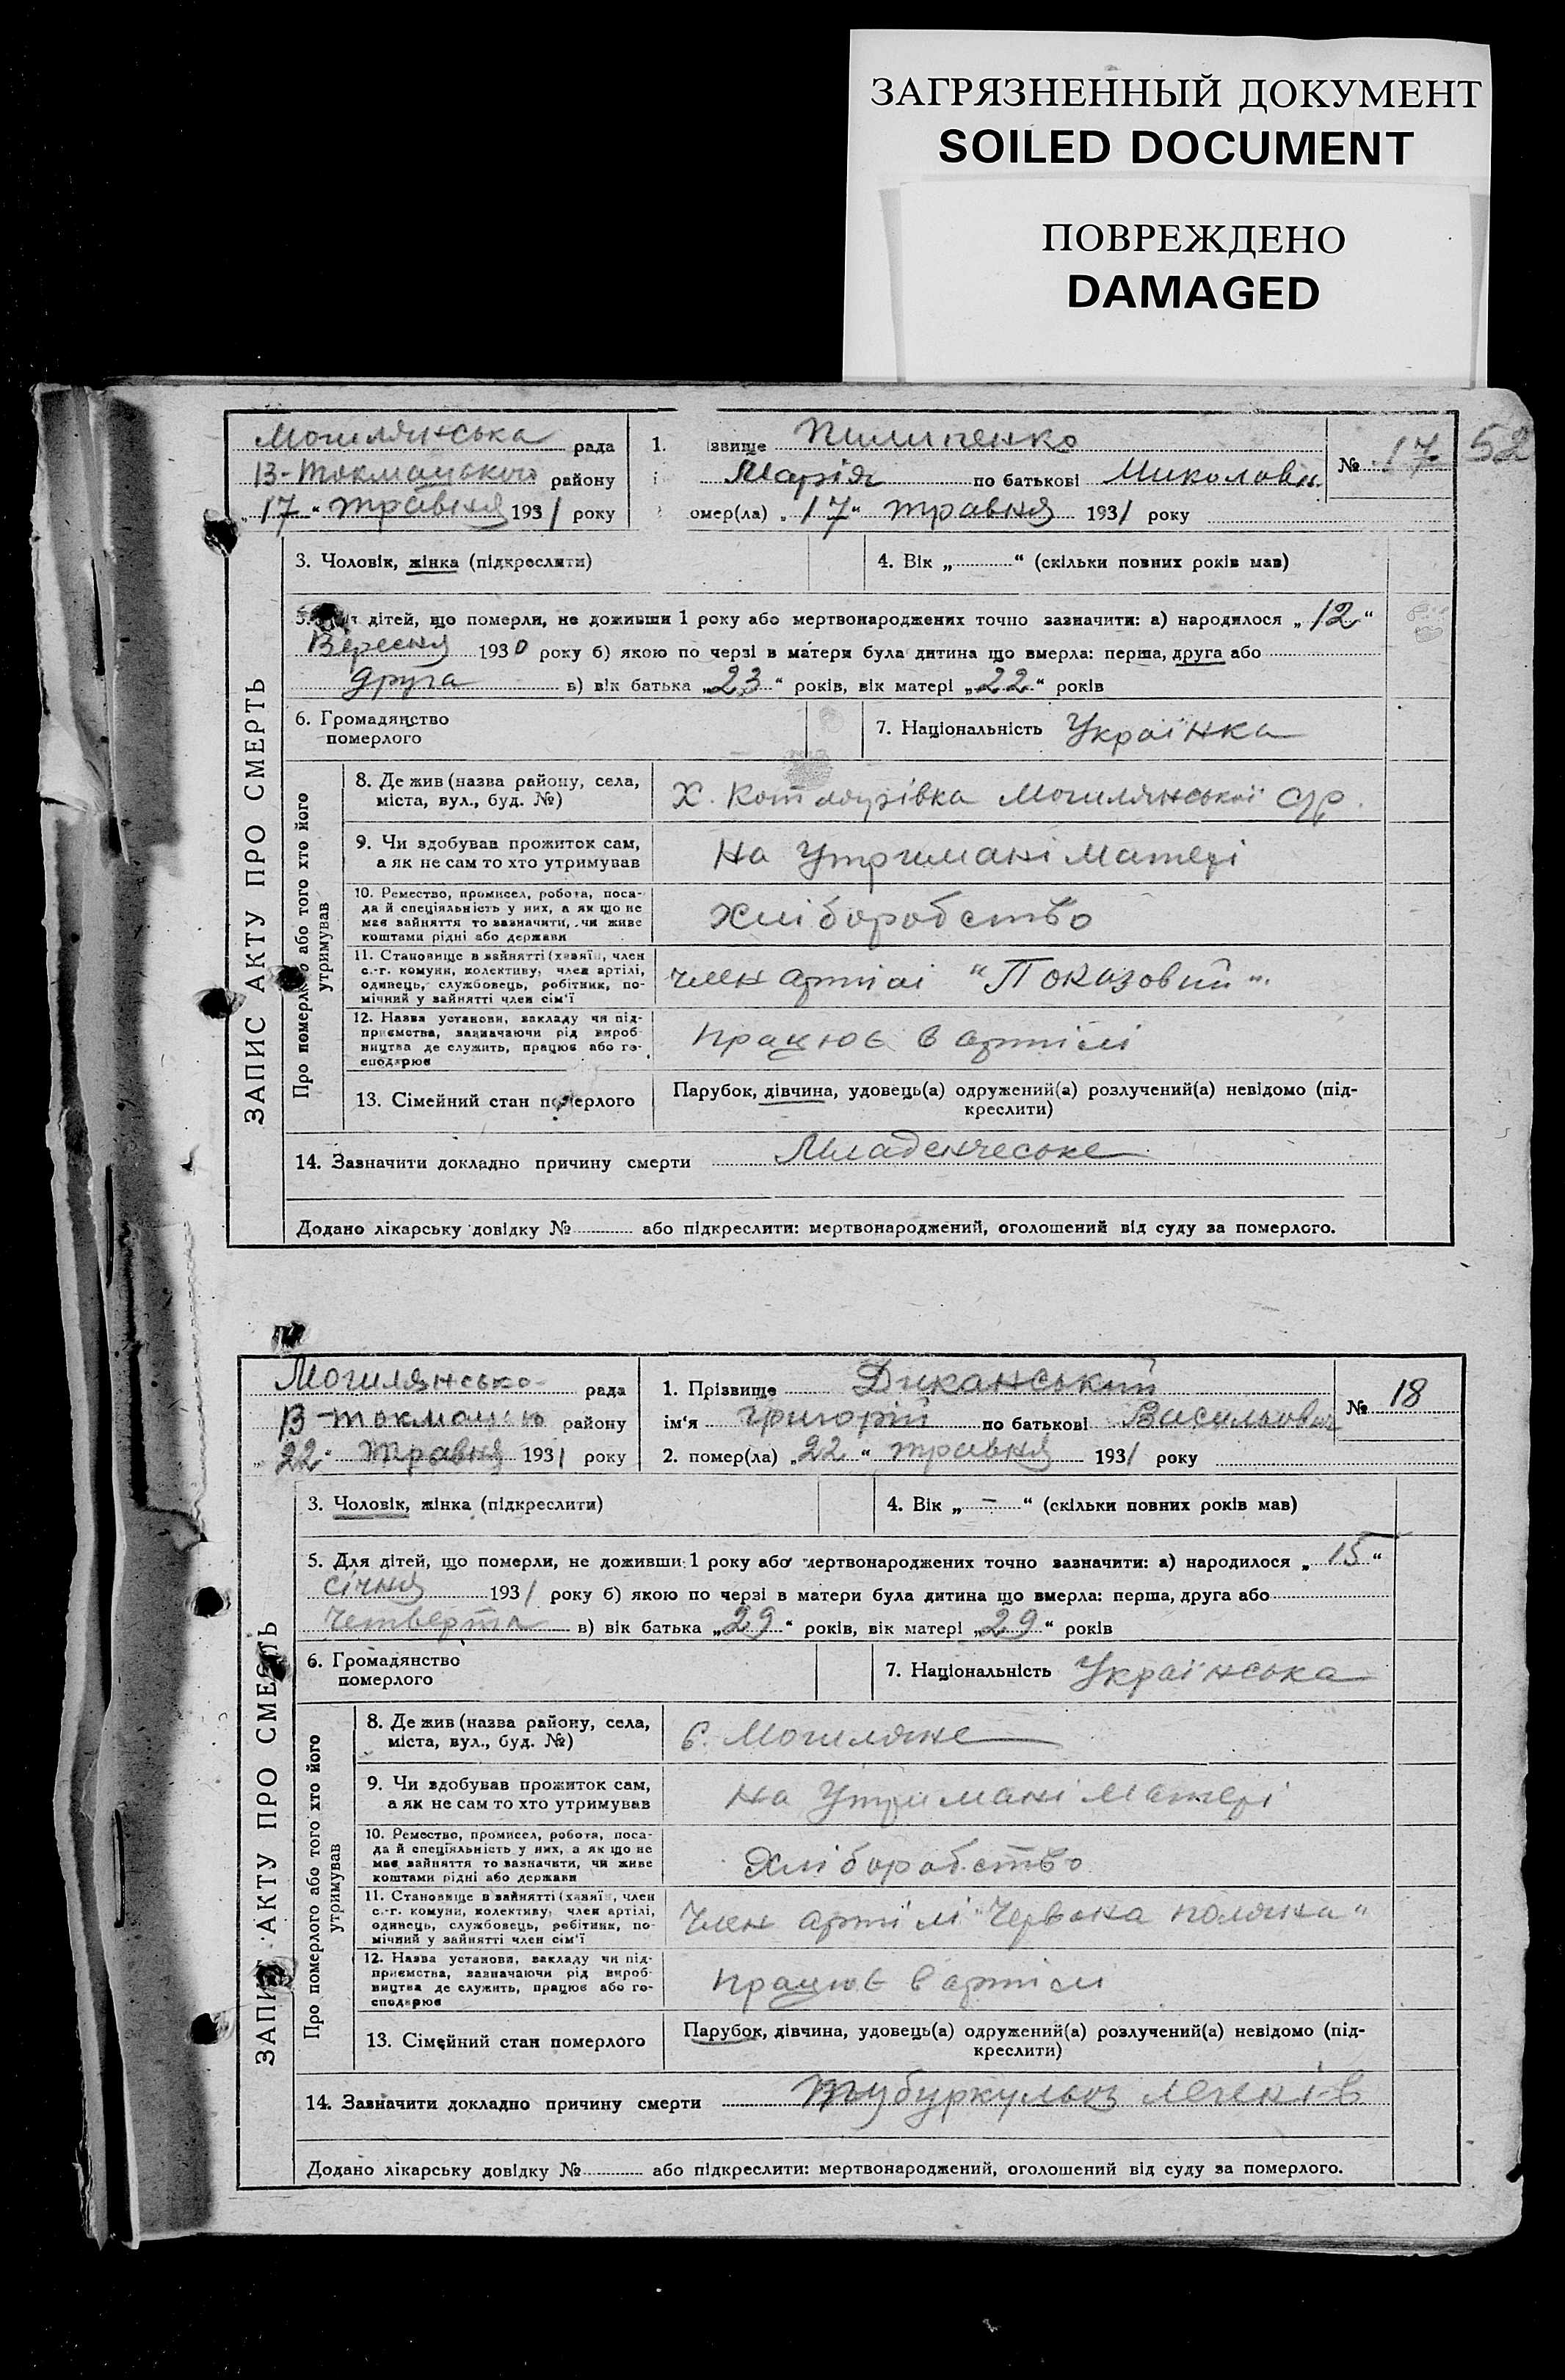 ЗАГРЯЗНЕННЫЙ ДОКУМЕНТ
SOILED DOCUMENT
ПОВРЕЖДЕНО
DAMAGED
52
ЗАПИС АКТУ ПРО СМЕРТЬ
Могилянська рада
В-Токмацького району
„17“ травня 1931 року
1. ізвище Пилипенко
Марія по батькові Миколовн.
омер(ла) „17“ травня 1931 року
№ 17
3. Чоловік, жінка (підкреслити)
4. Вік „ “ (скільки повних років мав)
5. дітей, що померли, не доживши 1 року або мертвонароджених точно зазначити: а) народилося „12“
Вересня 1930 року б) якою по черзі в матери була дитина що вмерла: перша, друга або
друга в) вік батька „23“ років, вік матері „22“ років
6. Громадянство
померлого
7. Національність Українка
Про померлого або того хто його
утримував
8. Де жив (назва району, села,
міста, вул., буд. №)
Х. Могилянської с/р.
9. Чи здобував прожиток сам,
а як не сам то хто утримував
На Утримані Матері
10. Ремество, промисел, робота, поса-
да й спеціяльність у них, а як що не
має вайняття то вазначити, чи живе
коштами рідні або держави
Хліборобство
11. Становище в вайнятті (хазяїн, член
с.-г. комуни, колективу, член артілі,
одинець, службовець, робітник, по-
мічний у вайнятті член сім'ї
член артілі "Показовий".
12. Назва установи, закладу чи під-
приємства, вазначаючи рід вироб-
ництва де служить, працює або го-
сподарює
працює в артілі
13. Сімейний стан померлого
Парубок, дівчина, удовець(а) одружений(а) розлучений(а) невідомо (під-
креслити)
14. Зазначити докладно причину смерти Младенческе
Додано лікарську довідку № або підкреслити: мертвонароджений, оголошений від суду за померлого.
ЗАПИС АКТУ ПРО СМЕРТЬ
Могилянсько рада
В-токмацько району
„22“ травня 1931 року
1. Прізвище Диканський
ім'я Григорій по батькові Васильович
2. помер(ла) „22“ травня 1931 року
№ 18
3. Чоловік, жінка (підкреслити)
4. Вік „ – “ (скільки повних років мав)
5. Для дітей, що померли, не доживши 1 року або мертвонароджених точно зазначити: а) народилося „15“
січня 1931 року б) якою по черзі в матери була дитина що вмерла: перша, друга або
четверта в) вік батька „29“ років, вік матері „29“ років
6. Громадянство
померлого
7. Національність Українська
Про померлого або того хто його
утримував
8. Де жив (назва району, села,
міста, вул., буд. №)
С. Могиляне
9. Чи здобував прожиток сам,
а як не сам то хто утримував
На Утримані Матері
10. Ремество, промисел, робота, поса-
да й спеціяльність у них, а як що не
має вайняття то вазначити, чи живе
коштами рідні або держави
Хліборобство
11. Становище в вайнятті (хазяїн, член
с.-г. комуни, колективу, член артілі,
одинець, службовець, робітник, по-
мічний у вайнятті член сім'ї
Член артілі "Червона поляна"
12. Назва установи, закладу чи під-
приємства, вазначаючи рід вироб-
ництва де служить, працює або го-
сподарює
працює в артілі
13. Сімейний стан померлого
Парубок, дівчина, удовець(а) одружений(а) розлучений(а) невідомо (під-
креслити)
14. Зазначити докладно причину смерти тубуркульоз легенів
Додано лікарську довідку № або підкреслити: мертвонароджений, оголошений від суду за померлого.